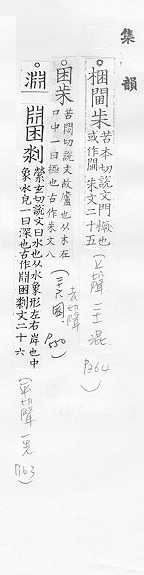 集韻
梱閫朱 苦本切說文門橛也
或作閫朱文二十五
(上聲 二十一混 P364)
困朱 苦悶切說文故廬也从木在
囗中一曰極也古作朱文八
去聲
(二十六圂 P550)
淵
開困剢 縈玄切說文曰水也从水象形左右岸也中
象水皃一曰深也古作開困剢文二十六
(平聲一先 P163)